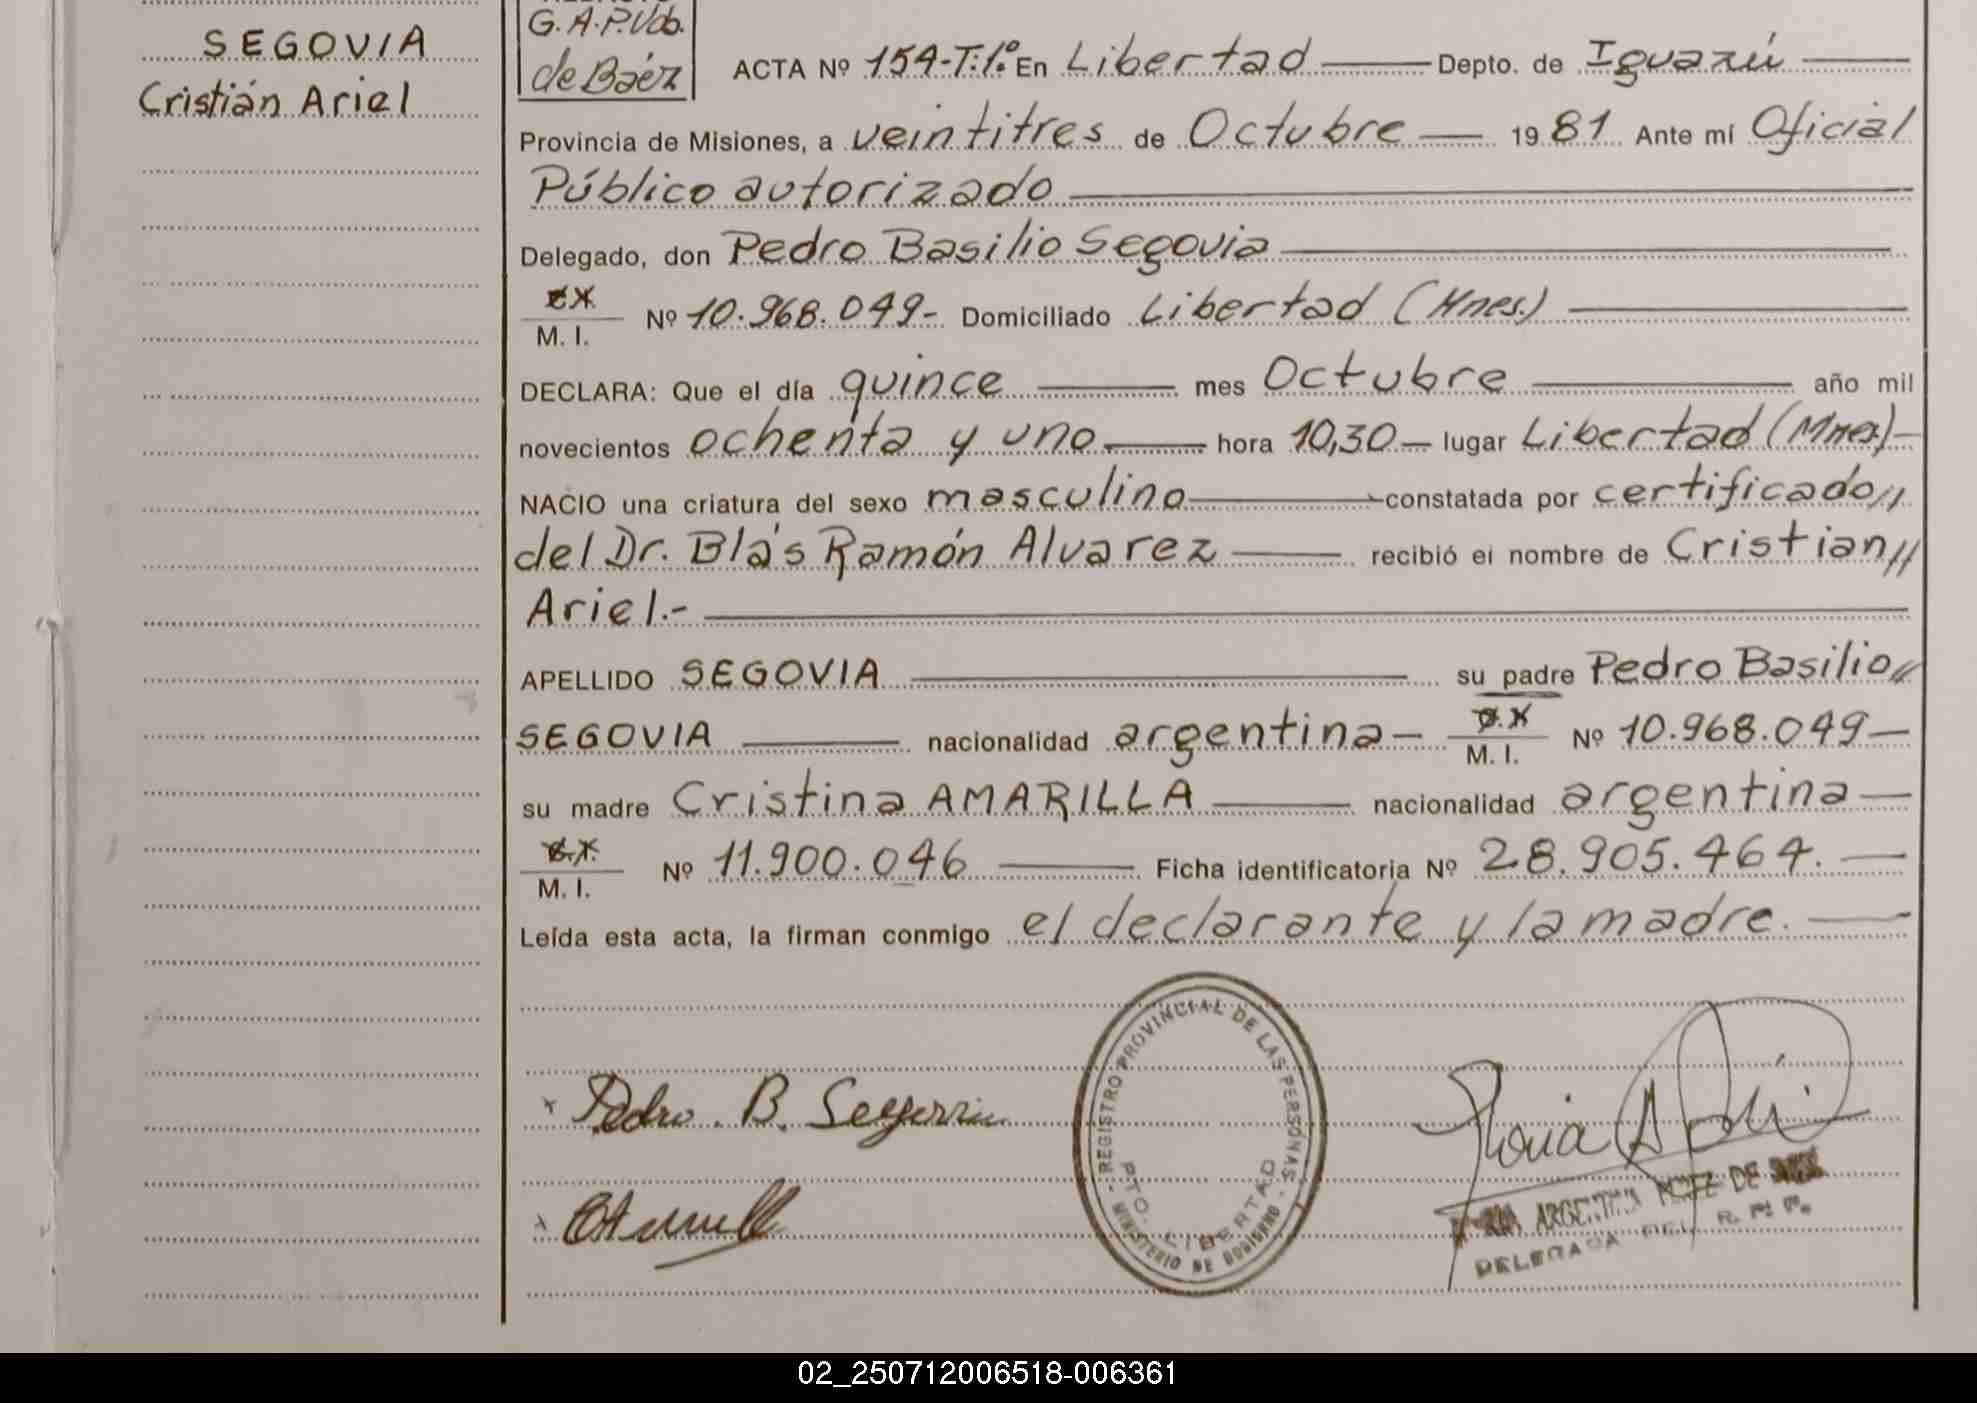 SEGOVIA
Cristián Ariel
G.A.P.Vda.
de Báez
ACTA Nº 154-T:1º En Libertad Depto. de Iguazú
Provincia de Misiones, a veintitres de Octubre 1981 Ante mí Oficial
Público autorizado
Delegado, don Pedro Basilio Segovia
M. I. Nº 10.968.049- Domiciliado Libertad (Mnes.)
DECLARA: Que el día quince mes Octubre año mil
novecientos ochenta y uno hora 10,30 lugar Libertad (Mnes)
NACIO una criatura del sexo masculino constatada por certificado//
del Dr. Blás Ramón Alvarez recibió el nombre de Cristian//
Ariel.-
APELLIDO SEGOVIA su padre Pedro Basilio//
SEGOVIA nacionalidad argentina M. I. Nº 10.968.049
su madre Cristina AMARILLA nacionalidad argentina
M. I. Nº 11.900.046 Ficha identificatoria Nº 28.905.464.
Leída esta acta, la firman conmigo el declarante y la madre.
REGISTRO PROVINCIAL DE LAS PERSONAS
PTO. LIBERTAD
MINISTERIO DE GOBIERNO
Pedro. B. Segovia
ARGENTINA
DE
DELEGADA DEL R. P. P.
02_250712006518-006361